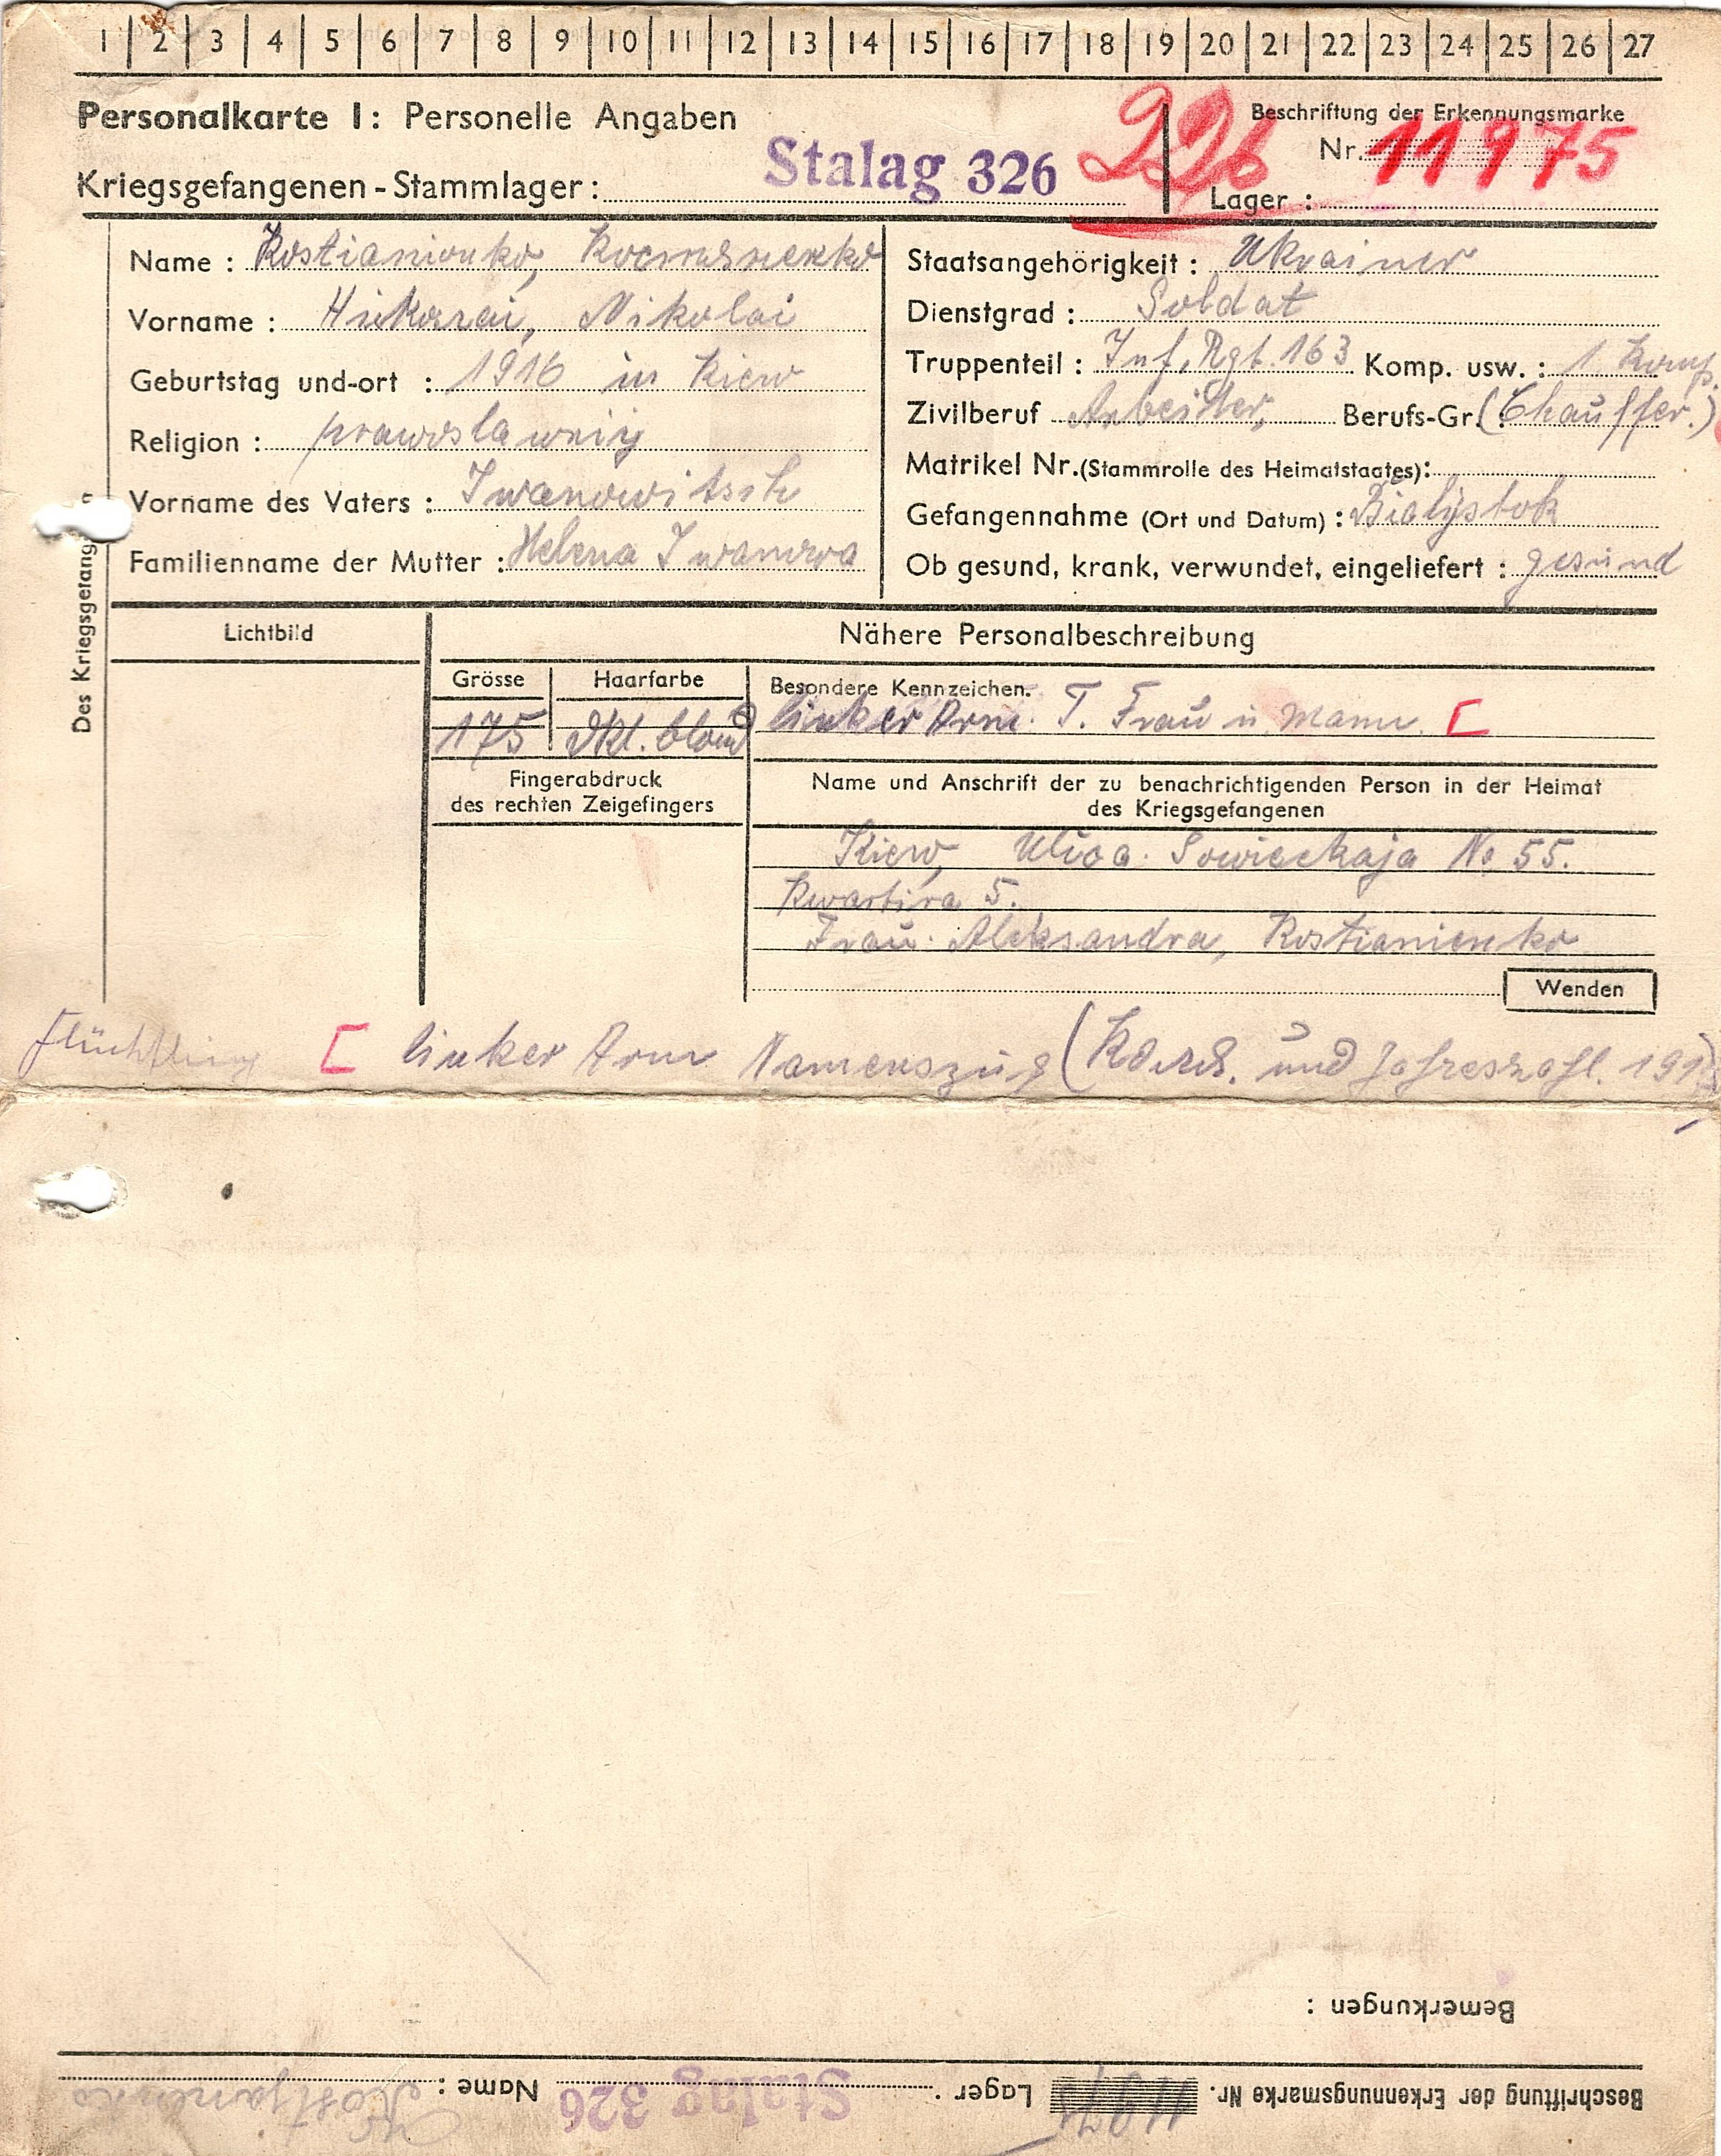 1 2 3 4 5 6 7 8 9 10 11 12 13 14 15 16 17 18 19 20 21 22 23 24 25 26 27
Personalkarte I: Personelle Angaben
Kriegsgefangenen-Stammlager: Stalag 326
226
Beschriftung der Erkennungsmarke
Nr. 11975
Lager :
Des Kriegsgefang n
Name : Kostianionko, Костяненко
Vorname : Николай, Nikolai
Geburtstag und-ort : 1916 in Kiew
Religion : prawoslawnij
Vorname des Vaters : Iwanowitsch
Familienname der Mutter : Helena Iwanowa
Staatsangehörigkeit : Ukrainer
Dienstgrad : Soldat
Truppenteil : Inf. Rgt. 163 Komp. usw. : 1. Komp.
Zivilberuf Arbeiter, Berufs-Gr. : (Chauffer.)
Matrikel Nr. (Stammrolle des Heimatstaates) :
Gefangennahme (Ort und Datum) : Bialystok
Ob gesund, krank, verwundet, eingeliefert : gesund
Lichtbild
Nähere Personalbeschreibung
Grösse Haarfarbe
175 dkl. blond
Besondere Kennzeichen.
linker Arm. T. Frau u. Mann. [
Fingerabdruck
des rechten Zeigefingers
Name und Anschrift der zu benachrichtigenden Person in der Heimat
des Kriegsgefangenen
Kiew, Sowieckaja No 55.
Kwartira 5.
Frau: Aleksandra, Kostianienko
Wenden
Flüchtling [ linker Arm Namenszug ( und Jahreszahl. 191
Bemerkungen :
Beschriftung der Erkennungsmarke Nr. 11975 Lager : Stalag 326 Name : Kostjanenko